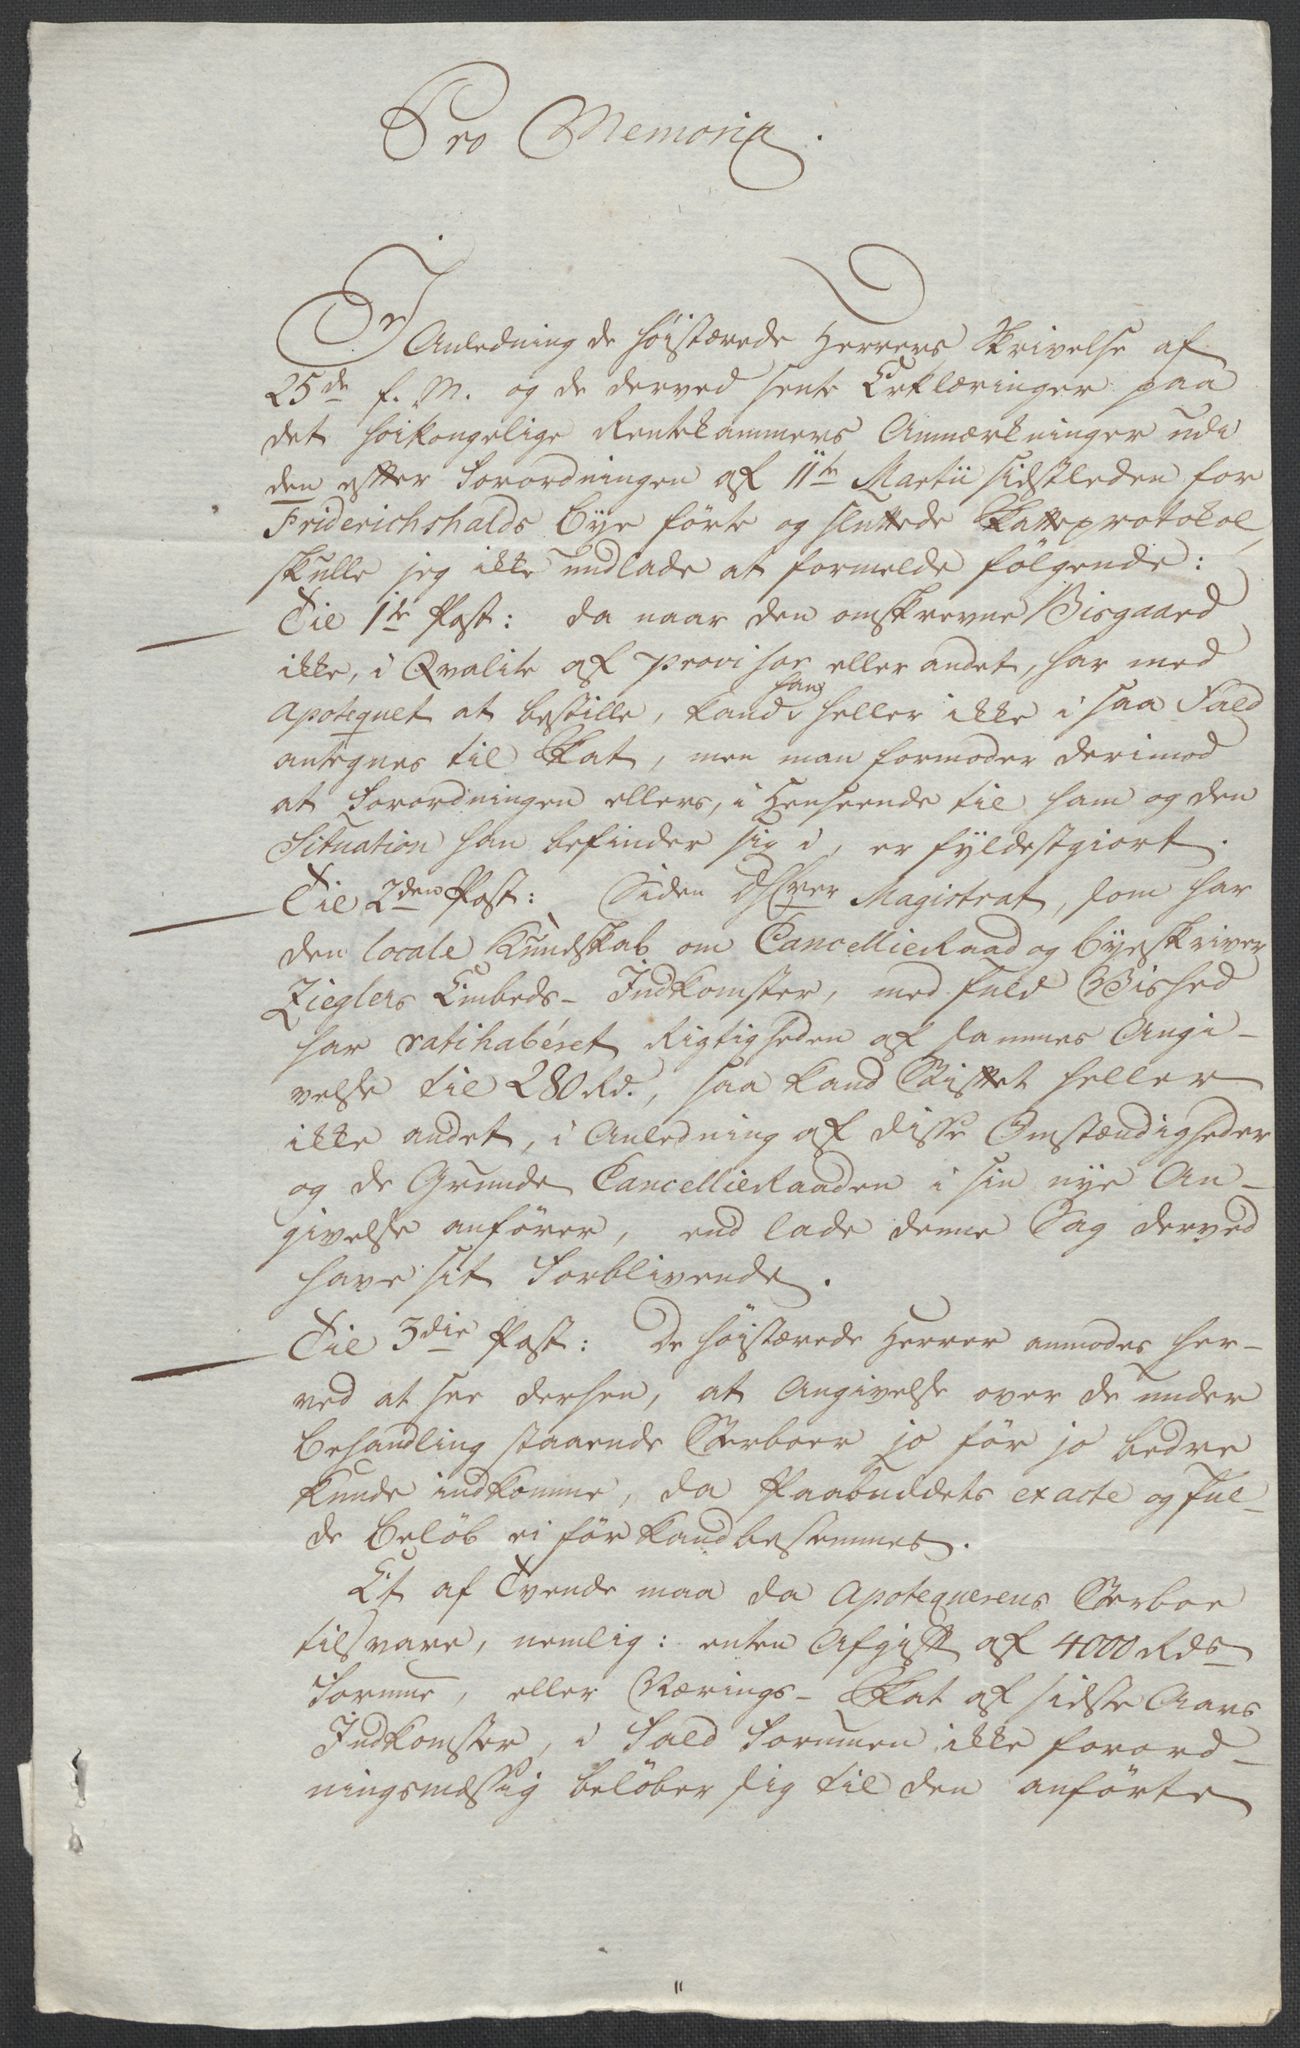 Pro Memoria.
I
Anledning de höistærede Herrers Skrivelse af
25de f. M. og de derved sente Erklæringer paa
det höikongelige Rentekammers Anmærkninger udi
den efter Forordningen af 11te Martii sidstleden for
Friderichshalds Bye förte og sluttede Skatteprotokol,
skulle jeg ikke undlade at formelde fölgende:
Til 1te Post: da naar den omskrevne Bisgaard
ikke, i Qvalite af provisor eller andet, har med
han
Apotequet at bestille, kand heller ikke i saa Fald
antegnes til Skat, men man formoder derimod
at Forordningen ellers, i Henseende til ham og den
Situation han befinder sig i, er fyldestgiort.
Til 2den Post: Siden Magistrat, som har
den locale Kundskab om CancellieRaad og Byeskriver
Zieglers Embeds- Indkomster, med fuld Vished
har ratihabéret Rigtigheden af sammes Angi-
velse til 280 Rd., saa kand Stiftet heller
ikke andet, i Anledning af disse Omstændigheder
og de Grunde CancellieRaaden i sin nye An-
givelse anförer, end lade denne Sag derved
have sit Forblivende.
Til 3die Post: De höistærede Herrer anmodes her-
ved at see derhen, at Angivelse over de under
Behandling staaende Sterboer jo för jo bedre
kunde indkomme, da Paabuddets exacte og ful-
de Belöb ei för kand bestemmes.
Et af Tvende maa da Apotequerens Sterboe
tilsvare, nemlig: enten Afgift af 4000 Rds
Formue, eller Nærings- Skat af sidste Aars
Indkomster, i Fald Formuen ikke forord-
ningsmæssig belöber sig til den anförte